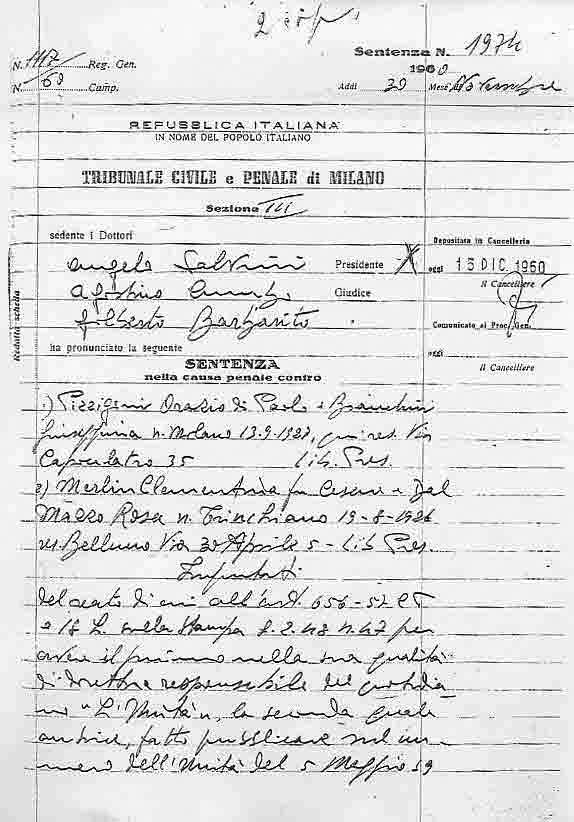 Sentenza N. 1974
N. 1117 Reg. Gen.
1960
N. 60 Camp.
Addì 30 Mese di Novembre
REPUBBLICA ITALIANA
IN NOME DEL POPOLO ITALIANO
TRIBUNALE CIVILE e PENALE di MILANO
Sezione III
sedente i Dottori
Depositata in Cancelleria
Angelo Salvini Presidente
oggi 15 DIC. 1960
Il Cancelliere
Agostino Giudice
Redatta scheda
Gilberto
Comunicato al Proc. Gen.
ha pronunciato la seguente
oggi
SENTENZA
Il Cancelliere
nella causa penale contro
1) Pizzigoni Orazio di Paolo e Bianchin
Giuseppina n. Milano 13.9.1927, qui res. Via
35 Lib. Pres.
2) Merlin Clementina fu Cesare e Dal
Mazzo Rosa n. Trichiano 19-8-1926
res. Belluno Via 30 Aprile 5 - Lib Pres.
Imputati
del reato di cui all'art. 656-57 CP
e 18 L. sulla Stampa 8.2.48 n.47 per
avere il primo nella sua qualità
di direttore responsabile del quotidia
no "L'Unità", la seconda quale
autrice, fatto pubblicare sul nu-
mero dell'Unità del 5 Maggio 59